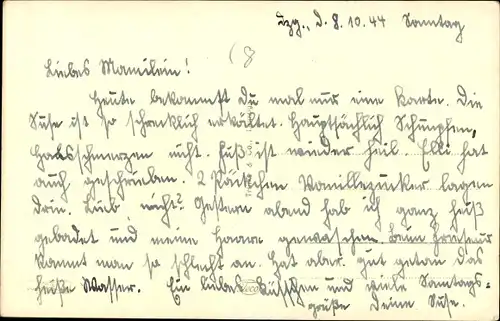 Lzg., d. 8.10.44 Sonntag
(8
Liebes Mamilein!
Heute bekommst Du mal nur eine Karte. Die
Suse ist so schrecklich erkältet. Hauptsächlich Schnupfen,
Halsschmerzen nicht. Fuß ist wieder heil. Elli hat
auch geschrieben. 2 Päckchen Vanillezucker lagen
drin. Lieb, nicht? Gestern abend hab ich ganz heiß
gebadet und meine Haare gewaschen. Beim Friseur
kommt man so schlecht an. Hat aber gut getan das
heiße Wasser. Ein liebes Küsschen und viele Sonntags-
grüße Deine Suse.